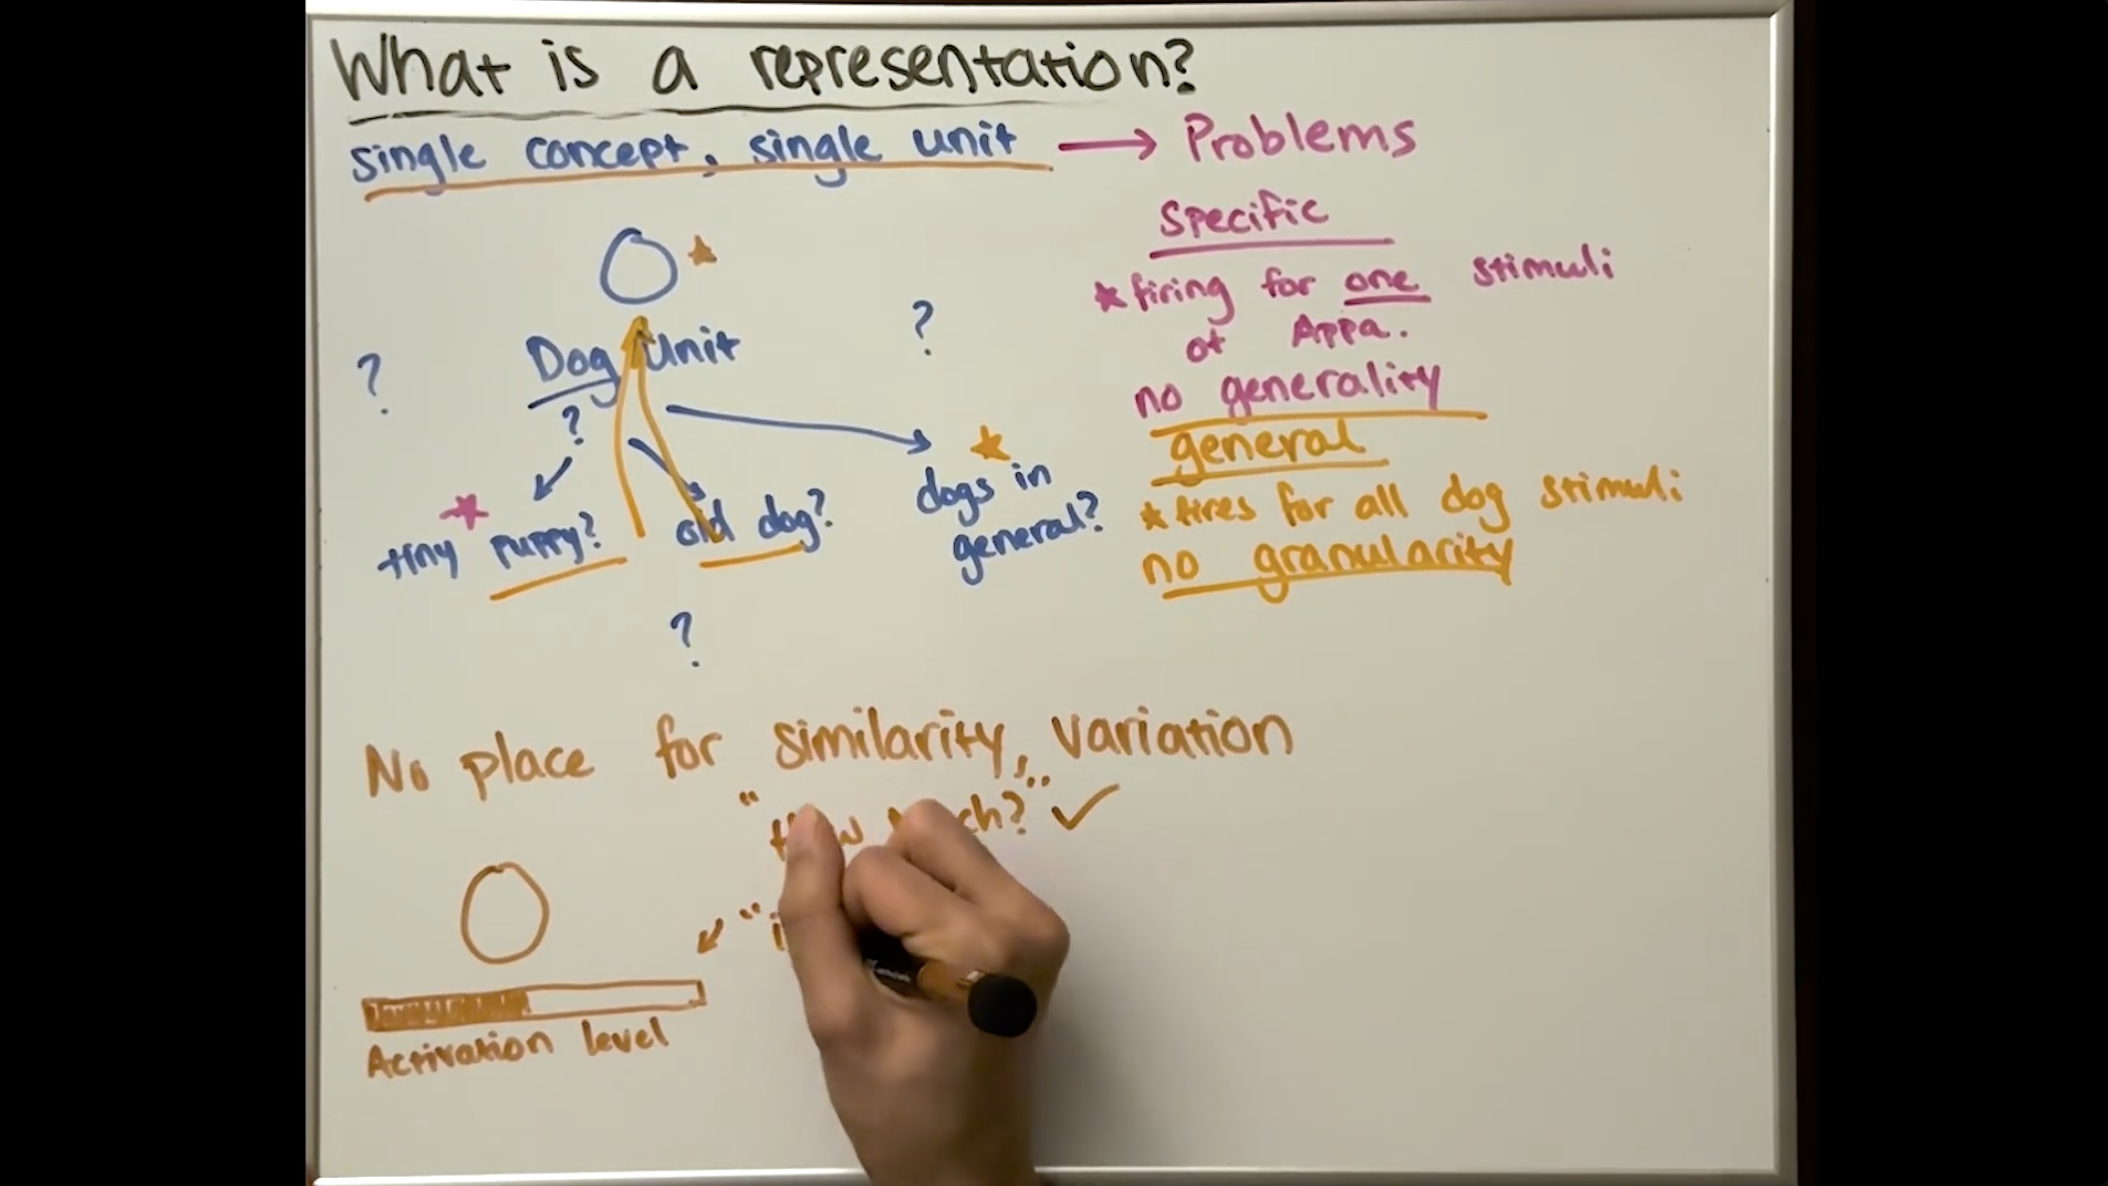 What is a representation?
single concept, single unit → Problems
Specific
*firing for one stimuli
of Appa.
no generality
general
*fires for all dog stimuli
no granularity
?
?
Dog Unit
?
tiny puppy?
old dog?
dogs in
general?
?
No place for similarity, variation
"How much?" ✓
"i
Activation level